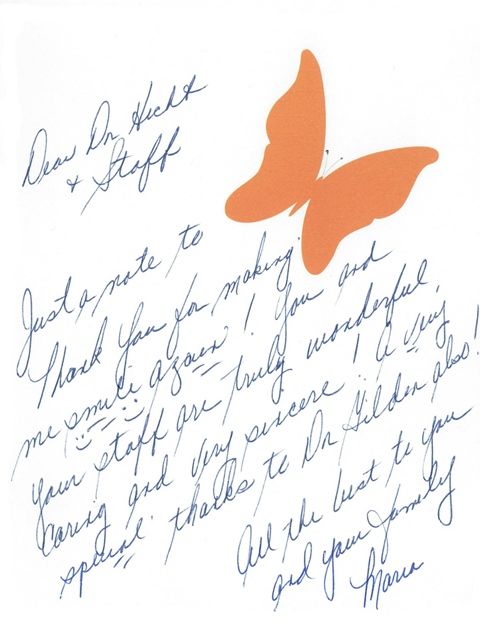 Dear Dr Hecht
+ Staff
Just a note to
Thank You for making
me smile again! You and
your staff are truly wonderful,
caring and very sincere! A very
special thanks to Dr Gilden also!
All the best to you
and your family
Maria